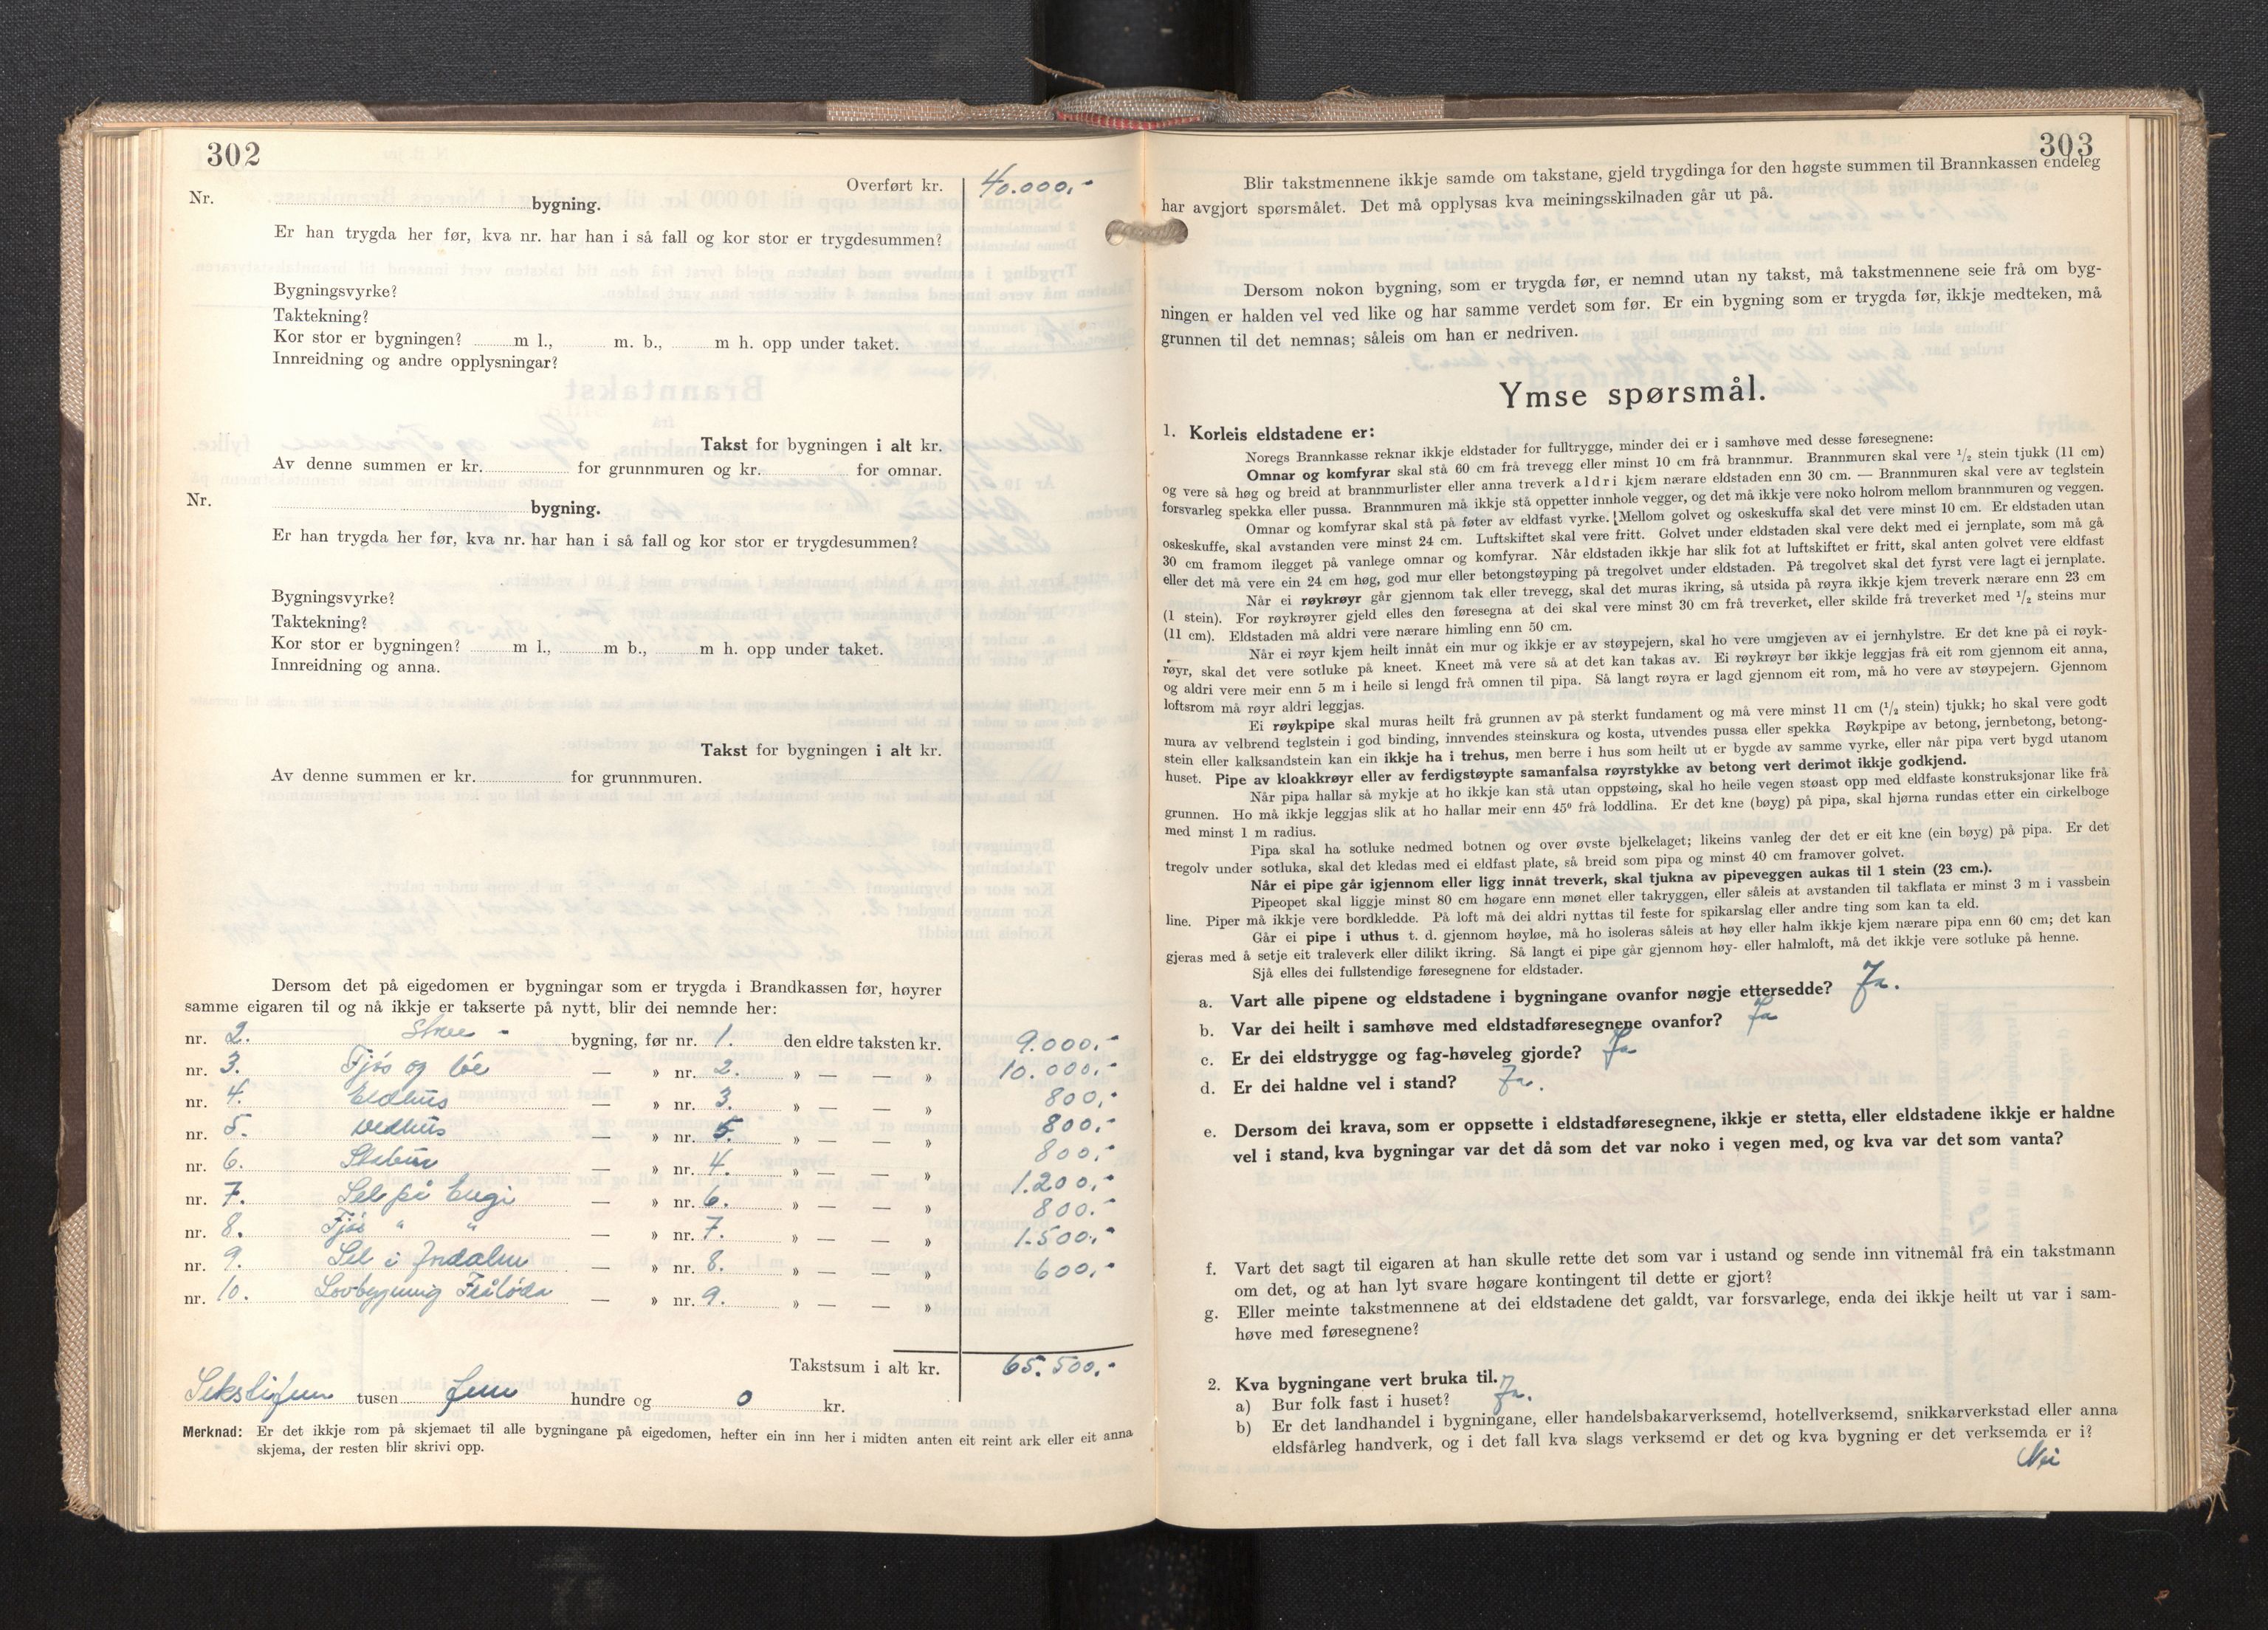 302
Overført kr. 40.000,-
Nr. bygning.
Er han trygda her før, kva nr. har han i så fall og kor stor er trygdesummen?
Bygningsvyrke?
Taktekning?
Kor stor er bygningen? m l., m. b., m h. opp under taket.
Innreidning og andre opplysningar?
Takst for bygningen i alt kr.
Av denne summen er kr. for grunnmuren og kr. for omnar.
Nr. bygning.
Er han trygda her før, kva nr. har han i så fall og kor stor er trygdesummen?
Bygningsvyrke?
Taktekning?
Kor stor er bygningen? m l., m b., m h. opp under taket.
Innreidning og anna.
Takst for bygningen i alt kr.
Av denne summen er kr. for grunnmuren.
Dersom det på eigedomen er bygningar som er trygda i Brandkassen før, høyrer
samme eigaren til og nå ikkje er takserte på nytt, blir dei nemnde her:
nr. 2. bygning, før nr. 1. den eldre taksten kr. 9.000,-
nr. 3. Fjøs og löe — » nr. 2. » — — » 10.000,-
nr. 4. Eldhus — » nr. 3. » — — » 800,-
nr. 5. Vedhus — » nr. 5. » — — » 800,-
nr. 6. Stabur — » nr. 4. » — — » 800,-
nr. 7. Sel på Engi — » nr. 6. » — — » 1.200,-
nr. 8. Fjös " " — » nr. 7. » — — » 800.-
nr. 9. Sel i — » nr. 8. » — — » 1.500,-
nr. 10. — » nr. 9. » — — » 600,-
Takstsum i alt kr. 65.500,-
Sekstifem tusen fem hundre og 0 kr.
Merknad: Er det ikkje rom på skjemaet til alle bygningane på eigedomen, hefter ein inn her i midten anten eit reint ark eller eit anna
skjema, der resten blir skrivi opp.
303
Blir takstmennene ikkje samde om takstane, gjeld trygdinga for den høgste summen til Brannkassen endeleg
har avgjort spørsmålet. Det må opplysas kva meiningsskilnaden går ut på.
Dersom nokon bygning, som er trygda før, er nemnd utan ny takst, må takstmennene seie frå om byg-
ningen er halden vel ved like og har samme verdet som før. Er ein bygning som er trygda før, ikkje medteken, må
grunnen til det nemnas; såleis om han er nedriven.
Ymse spørsmål.
1. Korleis eldstadene er:
Noregs Brannkasse reknar ikkje eldstader for fulltrygge, minder dei er i samhøve med desse føresegnene:
Omnar og komfyrar skal stå 60 cm frå trevegg eller minst 10 cm frå brannmur. Brannmuren skal vere 1/2 stein tjukk (11 cm)
og vere så høg og breid at brannmurlister eller anna treverk aldri kjem nærare eldstaden enn 30 cm. — Brannmuren skal vere av teglstein
forsvarleg spekka eller pussa. Brannmuren må ikkje stå oppetter innhole vegger, og det må ikkje vere noko holrom mellom brannmuren og veggen.
Omnar og komfyrar skal stå på føter av eldfast vyrke. Mellom golvet og oskeskuffa skal det vere minst 10 cm. Er eldstaden utan
oskeskuffe, skal avstanden vere minst 24 cm. Luftskiftet skal vere fritt. Golvet under eldstaden skal vere dekt med ei jernplate, som må gå
30 cm framom ilegget på vanlege omnar og komfyrar. Når eldstaden ikkje har slik fot at luftskiftet er fritt, skal anten golvet vere eldfast
eller det må vere ein 24 cm høg, god mur eller betongstøyping på tregolvet under eldstaden. På tregolvet skal det fyrst vere lagt ei jernplate.
Når ei røykrøyr går gjennom tak eller trevegg, skal det muras ikring, så utsida på røyra ikkje kjem treverk nærare enn 23 cm
(1 stein). For røykrøyrer gjeld elles den føresegna at dei skal vere minst 30 cm frå treverket, eller skilde frå treverket med 1/2 steins mur
(11 cm). Eldstaden må aldri vere nærare himling enn 50 cm.
Når ei røyr kjem heilt innåt ein mur og ikkje er av støypejern, skal ho vere umgjeven av ei jernhylstre. Er det kne på ei røyk-
røyr, skal det vere sotluke på kneet. Kneet må vere så at det kan takas av. Ei røykrøyr bør ikkje leggjas frå eit rom gjennom eit anna,
og aldri vere meir enn 5 m i heile si lengd frå omnen til pipa. Så langt røyra er lagd gjennom eit rom, må ho vere av støypejern. Gjennom
loftsrom må røyr aldri leggjas.
Ei røykpipe skal muras heilt frå grunnen av på sterkt fundament og må vere minst 11 cm (1/2 stein) tjukk; ho skal vere godt
mura av velbrend teglstein i god binding, innvendes steinskura og kosta, utvendes pussa eller spekka Røykpipe av betong, jernbetong, betong-
stein eller kalksandstein kan ein ikkje ha i trehus, men berre i hus som heilt ut er bygde av samme vyrke, eller når pipa vert bygd utanom
huset. Pipe av kloakkrøyr eller av ferdigstøypte samanfalsa røyrstykke av betong vert derimot ikkje godkjend.
Når pipa hallar så mykje at ho ikkje kan stå utan oppstøing, skal ho heile vegen støast opp med eldfaste konstruksjonar like frå
grunnen. Ho må ikkje leggjas slik at ho hallar meir enn 45° frå loddlina. Er det kne (bøyg) på pipa, skal hjørna rundas etter ein cirkelboge
med minst 1 m radius.
Pipa skal ha sotluke nedmed botnen og over øvste bjelkelaget; likeins vanleg der det er eit kne (ein bøyg) på pipa. Er det
tregolv under sotluka, skal det kledas med ei eldfast plate, så breid som pipa og minst 40 cm framover golvet.
Når ei pipe går igjennom eller ligg innåt treverk, skal tjukna av pipeveggen aukas til 1 stein (23 cm.).
Pipeopet skal liggje minst 80 cm høgare enn mønet eller takryggen, eller såleis at avstanden til takflata er minst 3 m i vassbein
line. Piper må ikkje vere bordkledde. På loft må dei aldri nyttas til feste for spikarslag eller andre ting som kan ta eld.
Går ei pipe i uthus t. d. gjennom høyløe, må ho isoleras såleis at høy eller halm ikkje kjem nærare pipa enn 60 cm; det kan
gjeras med å setje eit traleverk eller dilikt ikring. Så langt ei pipe går gjennom høy- eller halmloft, må det ikkje vere sotluke på henne.
Sjå elles dei fullstendige føresegnene for eldstader.
a. Vart alle pipene og eldstadene i bygningane ovanfor nøgje ettersedde? Ja.
b. Var dei heilt i samhøve med eldstadføresegnene ovanfor? Ja
c. Er dei eldstrygge og fag-høveleg gjorde? Ja
d. Er dei haldne vel i stand? Ja.
e. Dersom dei krava, som er oppsette i eldstadføresegnene, ikkje er stetta, eller eldstadene ikkje er haldne
vel i stand, kva bygningar var det då som det var noko i vegen med, og kva var det som vanta?
f. Vart det sagt til eigaren at han skulle rette det som var i ustand og sende inn vitnemål frå ein takstmann
om det, og at han lyt svare høgare kontingent til dette er gjort?
g. Eller meinte takstmennene at dei eldstadene det galdt, var forsvarlege, enda dei ikkje heilt ut var i sam-
høve med føresegnene?
2. Kva bygningane vert bruka til.
a) Bur folk fast i huset? Ja.
b) Er det landhandel i bygningane, eller handelsbakarverksemd, hotellverksemd, snikkarverkstad eller anna
eldsfårleg handverk, og i det fall kva slags verksemd er det og kva bygning er det verksemda er i?
Nei